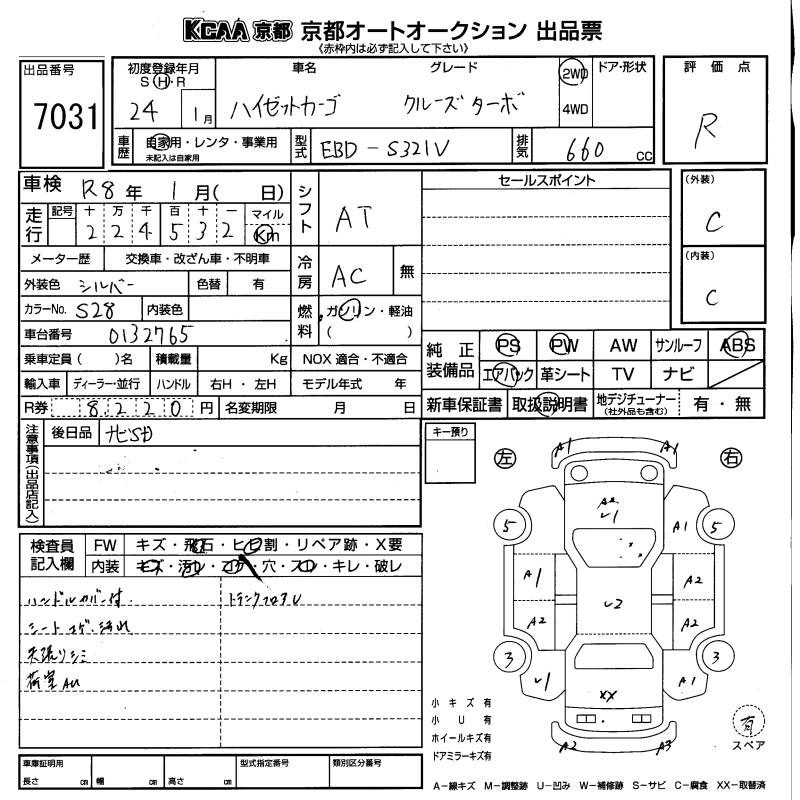 KCAA 京都 京都オートオークション 出品票
《赤枠内は必ず記入して下さい》
出品番号
7031
初度登録年月 車名 グレード ドア・形状
S・H・R
24 1月 ハイゼットカーゴ クルーズターボ
2WD
4WD
車歴 自家用・レンタ・事業用
未記入は自家用
型式 EBD-S321V 排気 660 CC
評価点
R
車検 R8年 1月( 日)
走行 記号 十 万 千 百 十 一 マイル
2 2 4 5 3 2 Km
メーター歴 交換車・改ざん車・不明車
外装色 シルバー 色替 有
カラーNo. S28 内装色
車台番号 0132765
乗車定員( )名 積載量 Kg
輸入車 ディーラー・並行 ハンドル 右H・左H
R券 8220円 名変期限 月 日
シフト AT
冷房 AC 無
燃料 ガソリン・軽油
( )
NOX適合・不適合
モデル年式 年
セールスポイント
(外装)
C
(内装)
C
純正装備品 PS PW AW サンルーフ ABS
エアバック 革シート TV ナビ
新車保証書 取扱説明書 地デジチューナー
(社外品も含む)
有・無
注意事項(出品店記入)
後日品 ナビSD
キー預り
検査員記入欄
FW キズ・飛石・ヒビ割・リペア跡・X要
内装 キズ・汚レ・コゲ・穴・スレ・キレ・破レ
ハンドルカバー付
トランクフロアU
シートコゲ・汚れ
天張りシミ
荷室AU
左 右
A1 A1
A2
U1
5 5
A1
A1 A2
U2
A2 A2
3 3
U1 A1
XX
A2 A3
小キズ有
小U有
ホイールキズ有
ドアミラーキズ有
有
スペア
車庫証明用
長さ cm 幅 cm 高さ cm
型式指定番号
類別区分番号
A-線キズ M-調整跡 U-凹み W-補修跡 S-サビ C-腐食 XX-取替済